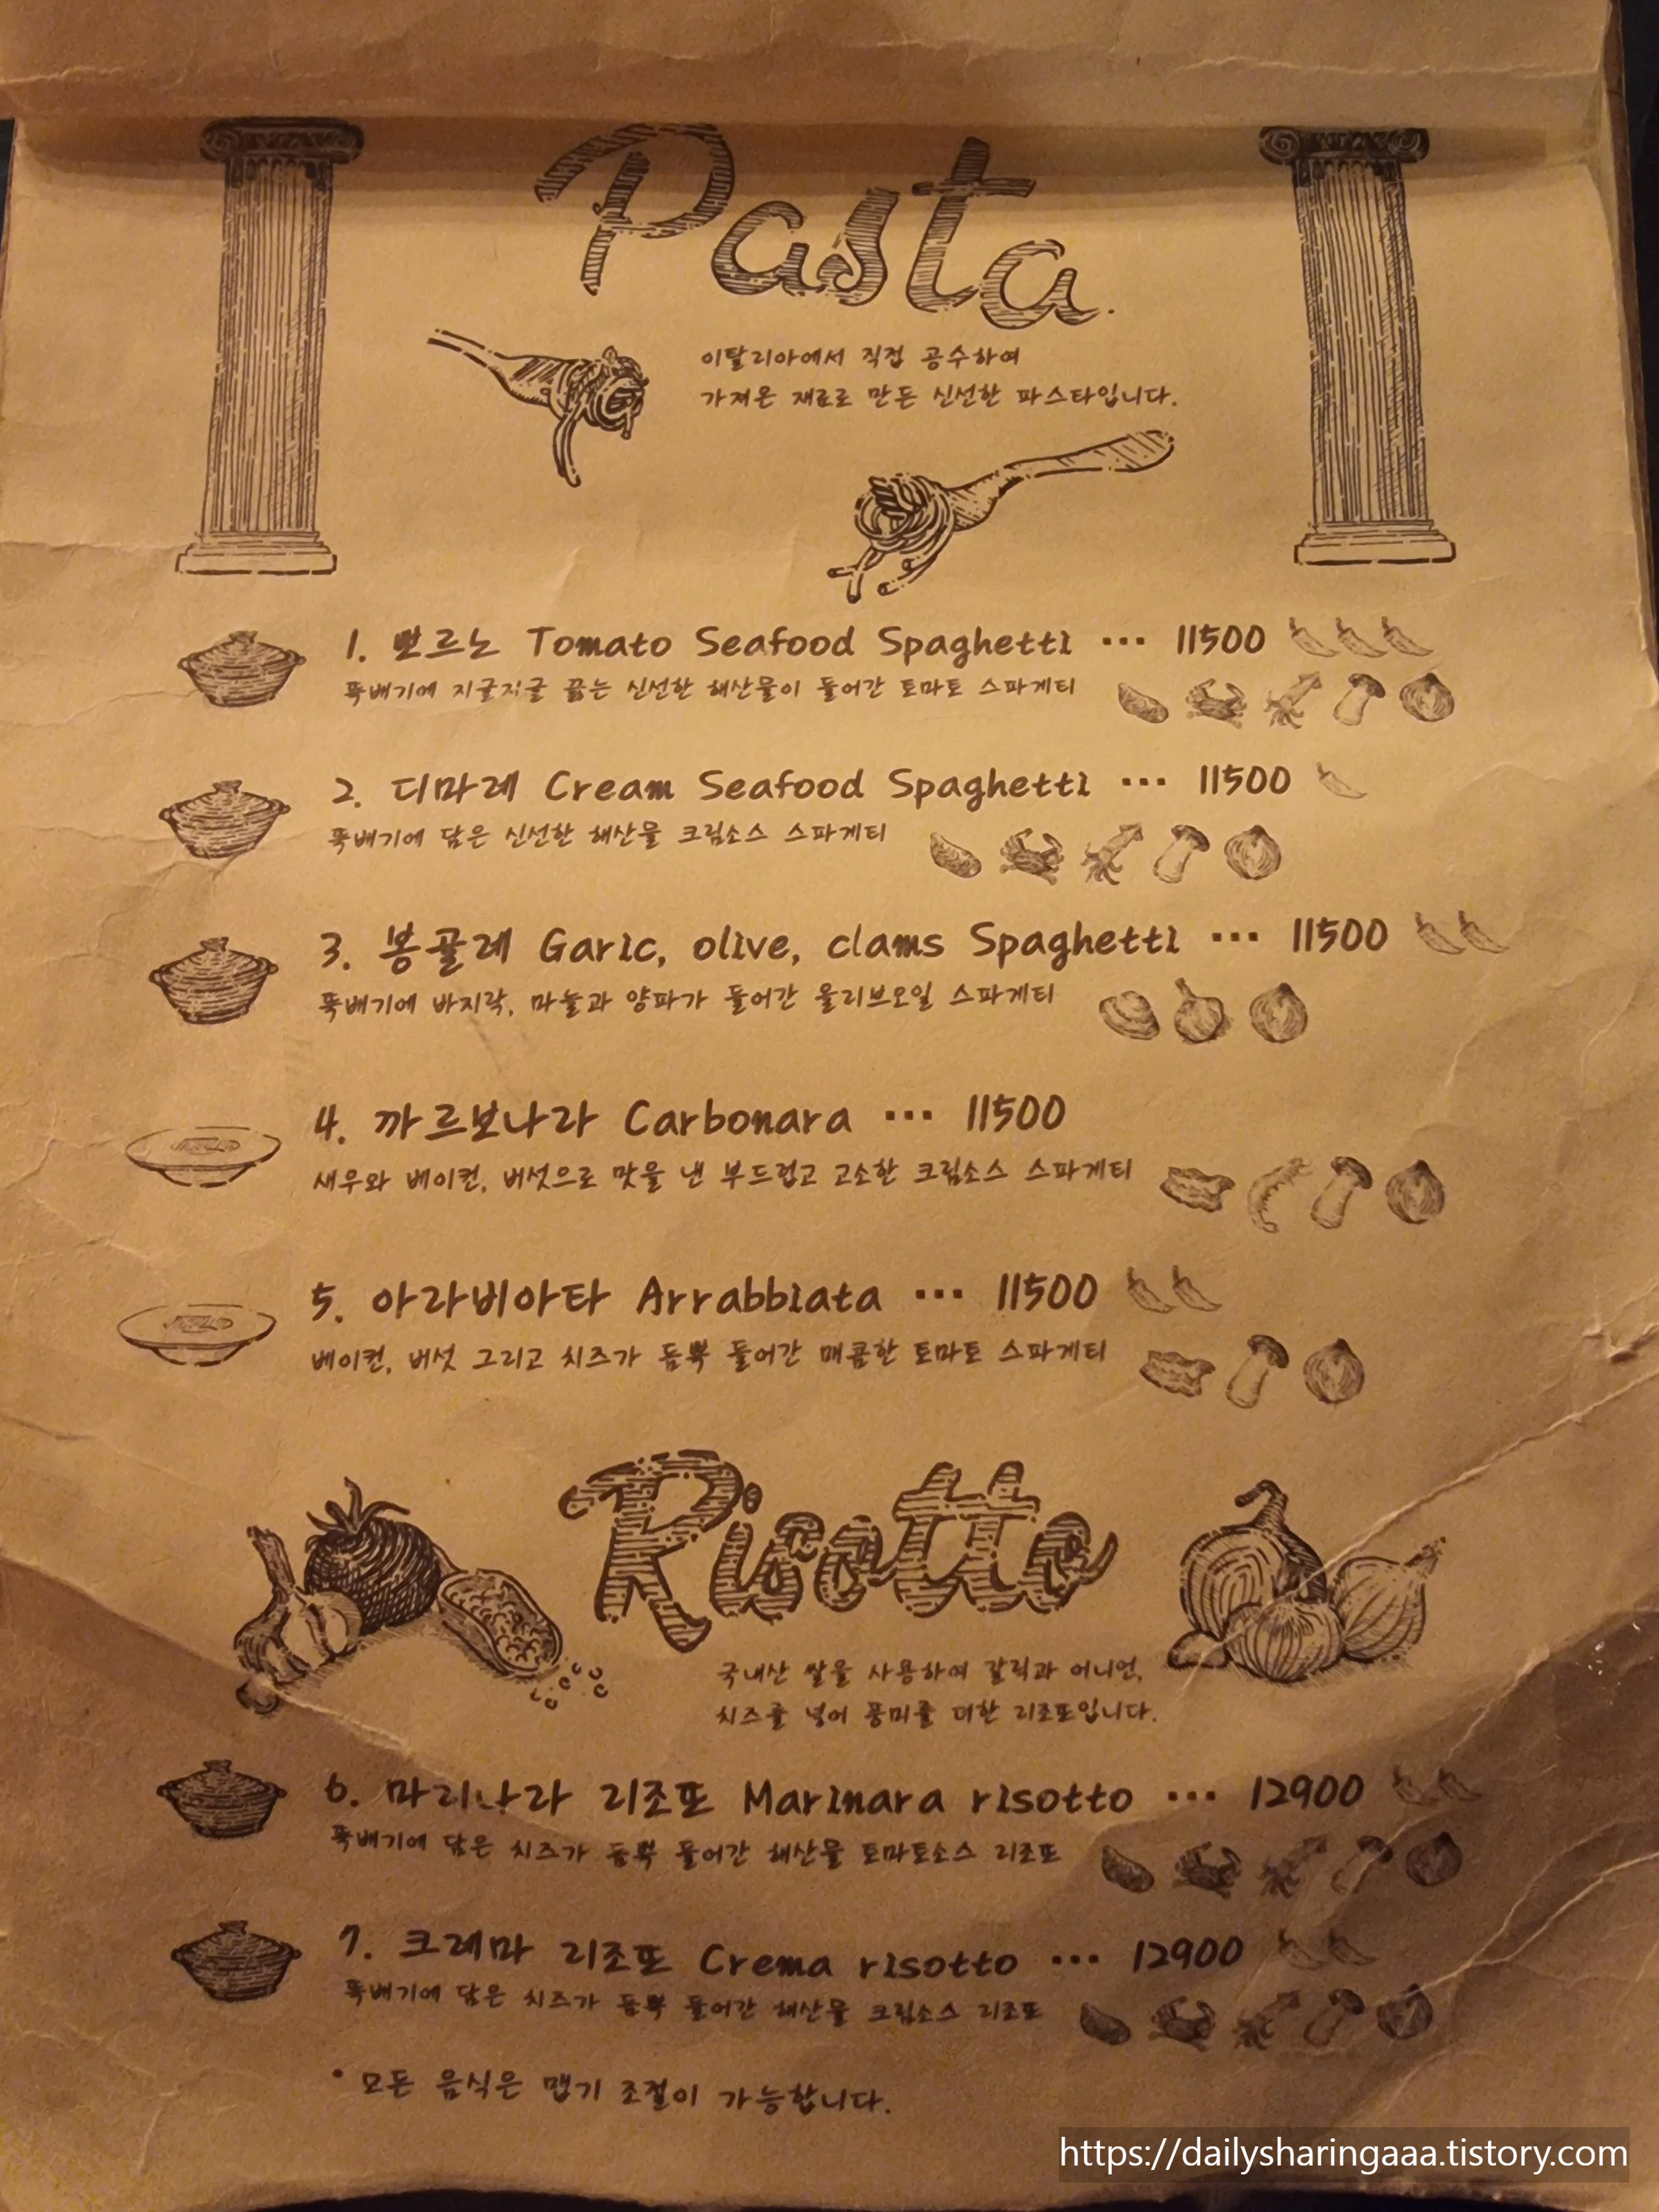 Pasta
이탈리아에서 직접 공수하여
가져온 재료로 만든 신선한 파스타입니다.
1. 뽀르노 Tomato Seafood Spaghetti ... 11500
뚝배기에 지글지글 끓는 신선한 해산물이 들어간 토마토 스파게티
2. 디마레 Cream Seafood Spaghetti ... 11500
뚝배기에 담은 신선한 해산물 크림소스 스파게티
3. 봉골레 Garic, olive, clams Spaghetti ... 11500
뚝배기에 바지락, 마늘과 양파가 들어간 올리브오일 스파게티
4. 까르보나라 Carbonara ... 11500
새우와 베이컨, 버섯으로 맛을 낸 부드럽고 고소한 크림소스 스파게티
5. 아라비아타 Arrabbiata ... 11500
베이컨, 버섯 그리고 치즈가 듬뿍 들어간 매콤한 토마토 스파게티
Risotto
국내산 쌀을 사용하여 갈릭과 어니언,
치즈를 넣어 풍미를 더한 리조또입니다.
6. 마리나라 리조또 Marinara risotto ... 12900
뚝배기에 담은 치즈가 듬뿍 들어간 해산물 토마토소스 리조또
7. 크레마 리조또 Crema risotto ... 12900
뚝배기에 담은 치즈가 듬뿍 들어간 해산물 크림소스 리조또
* 모든 음식은 맵기 조절이 가능합니다.
https://dailysharingaaa.tistory.com